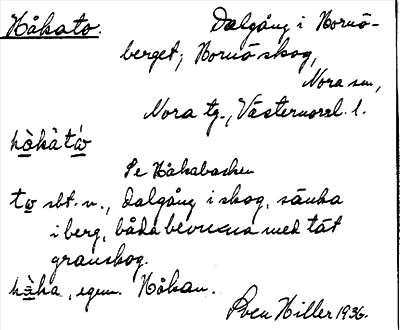 Håkato. Dalgång i Nornö-
berget, Nornö skog,
Nora sn,
Nora tg., Västernorrl. l.
hò̱kàtẃ̱
Se Håkabacken
tw̱ sbt. n., Dalgång i skog, sänka
i berg, båda bevuxna med tät
granskog.
hà̱ka, egnn. Håkan.
Sven Hiller 1936.